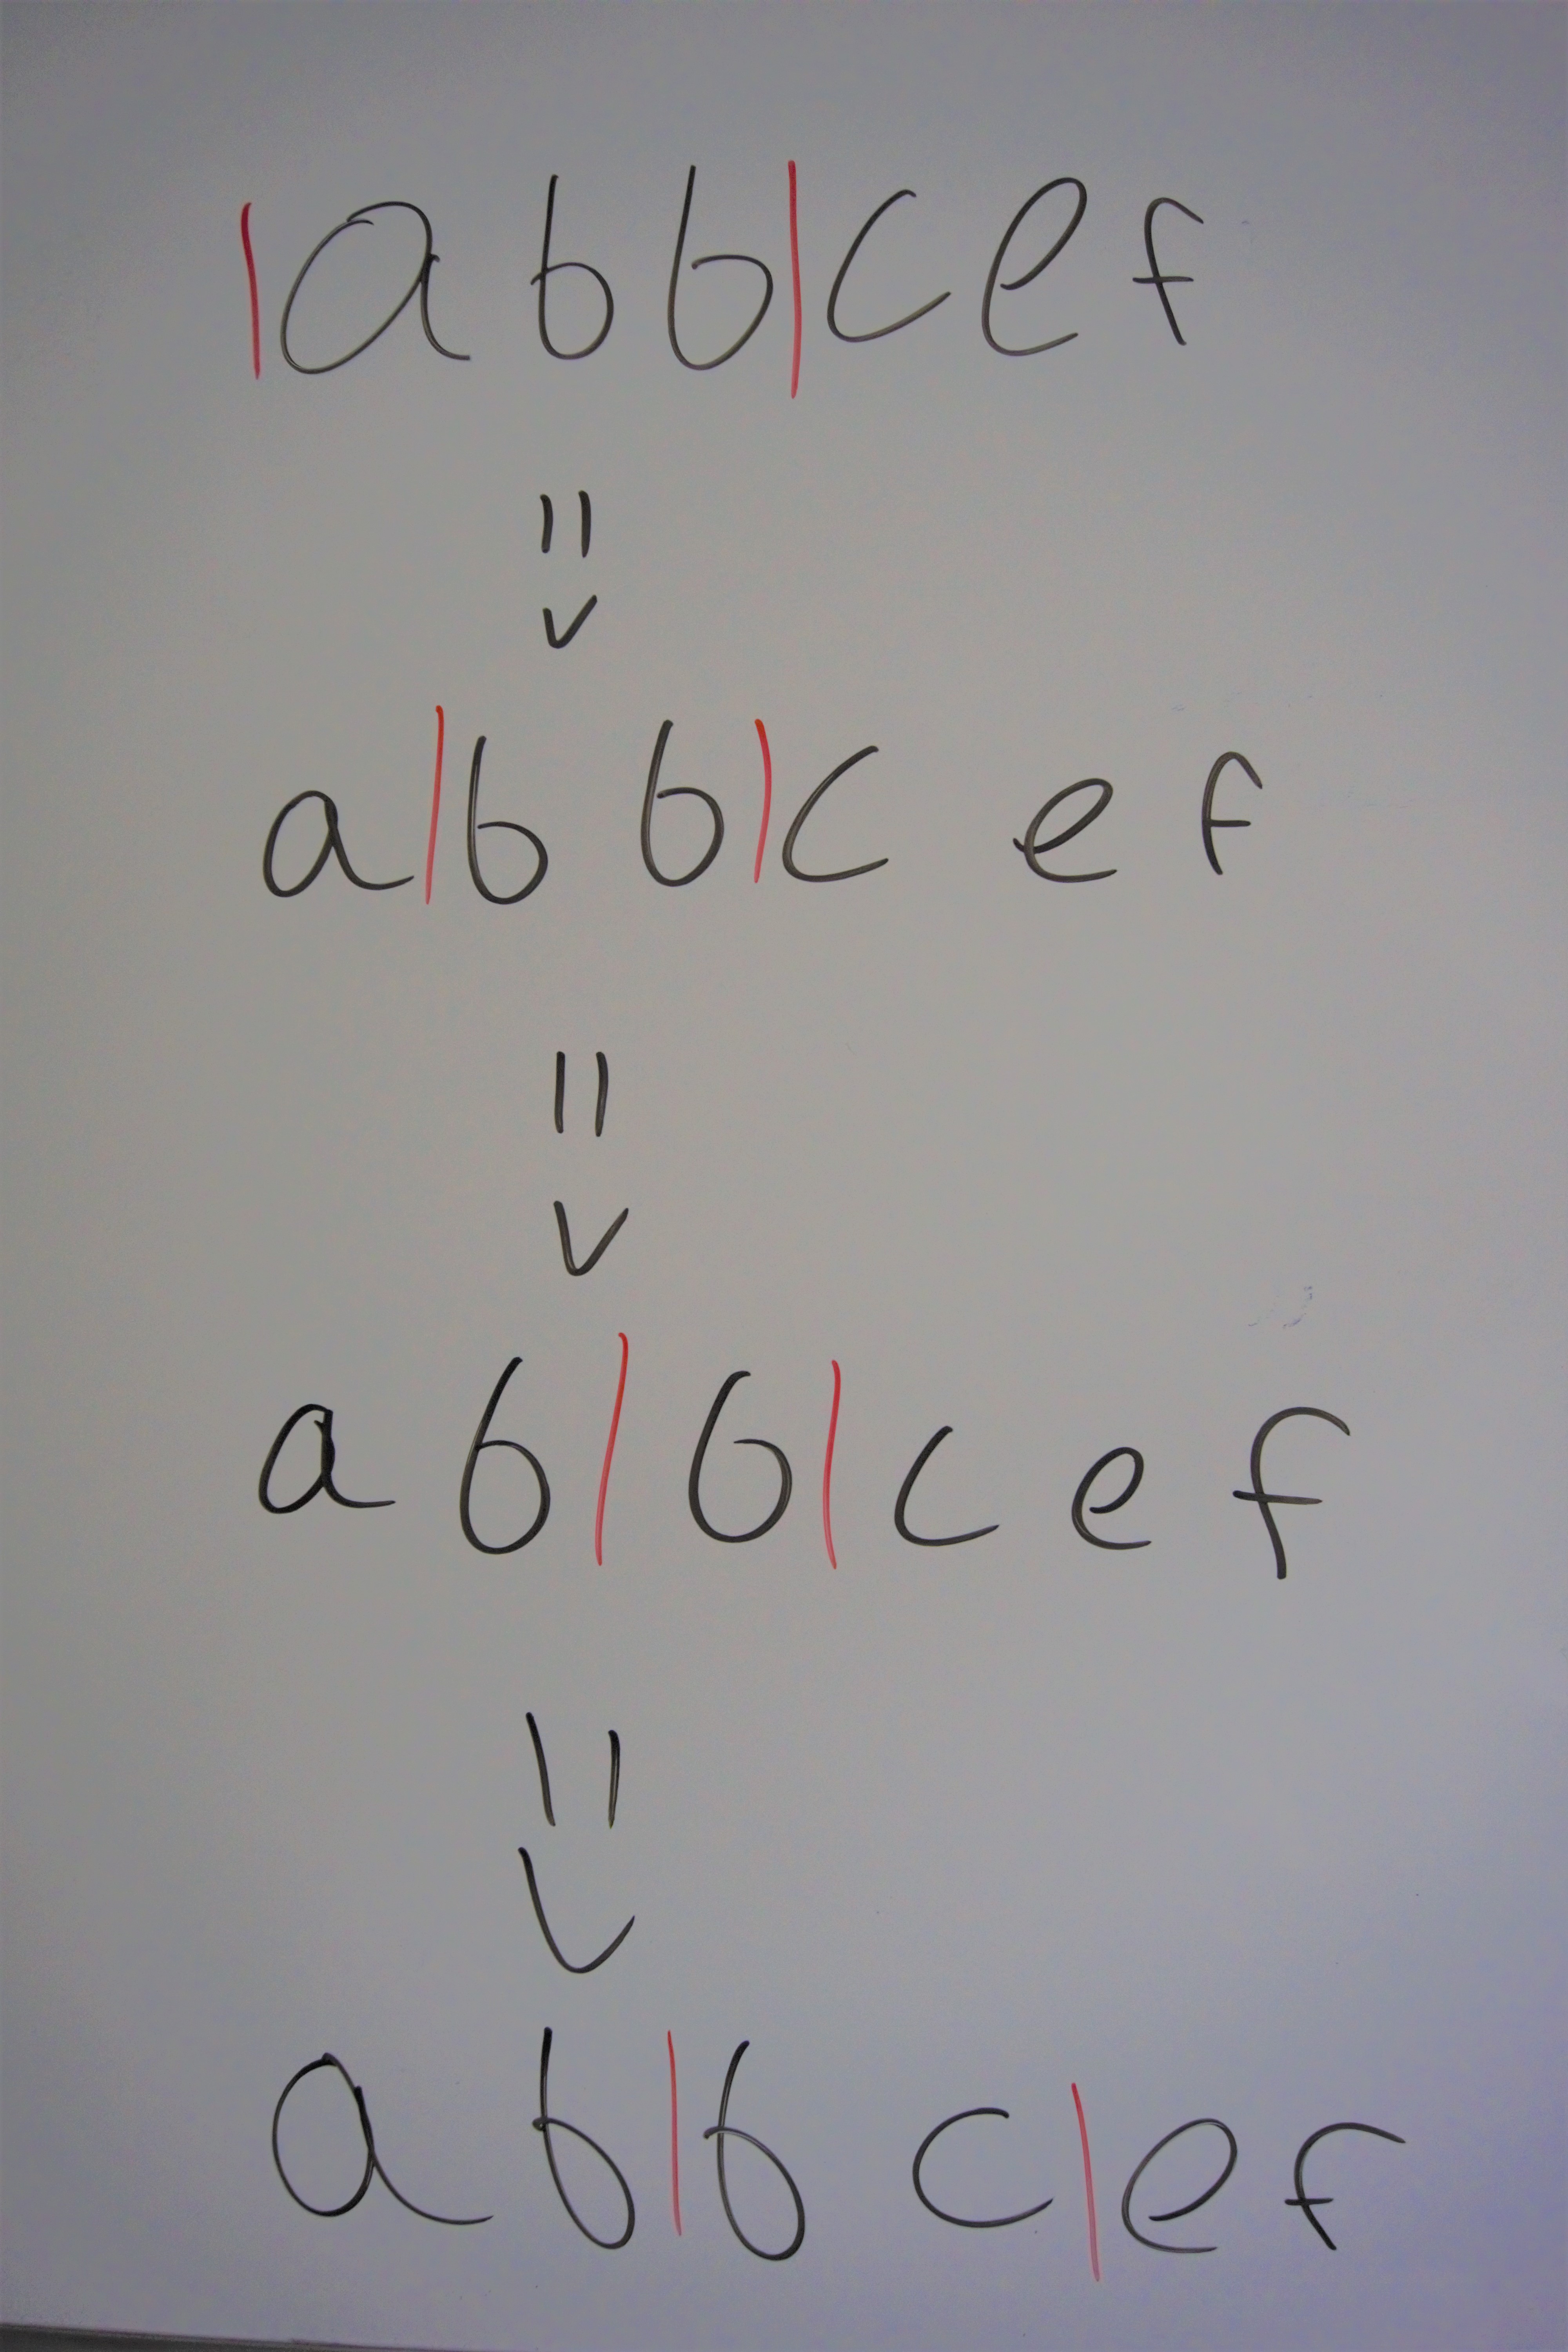 |abb|cef
=>
a|bb|cef
=>
ab|b|cef
=>
ab|bc|ef